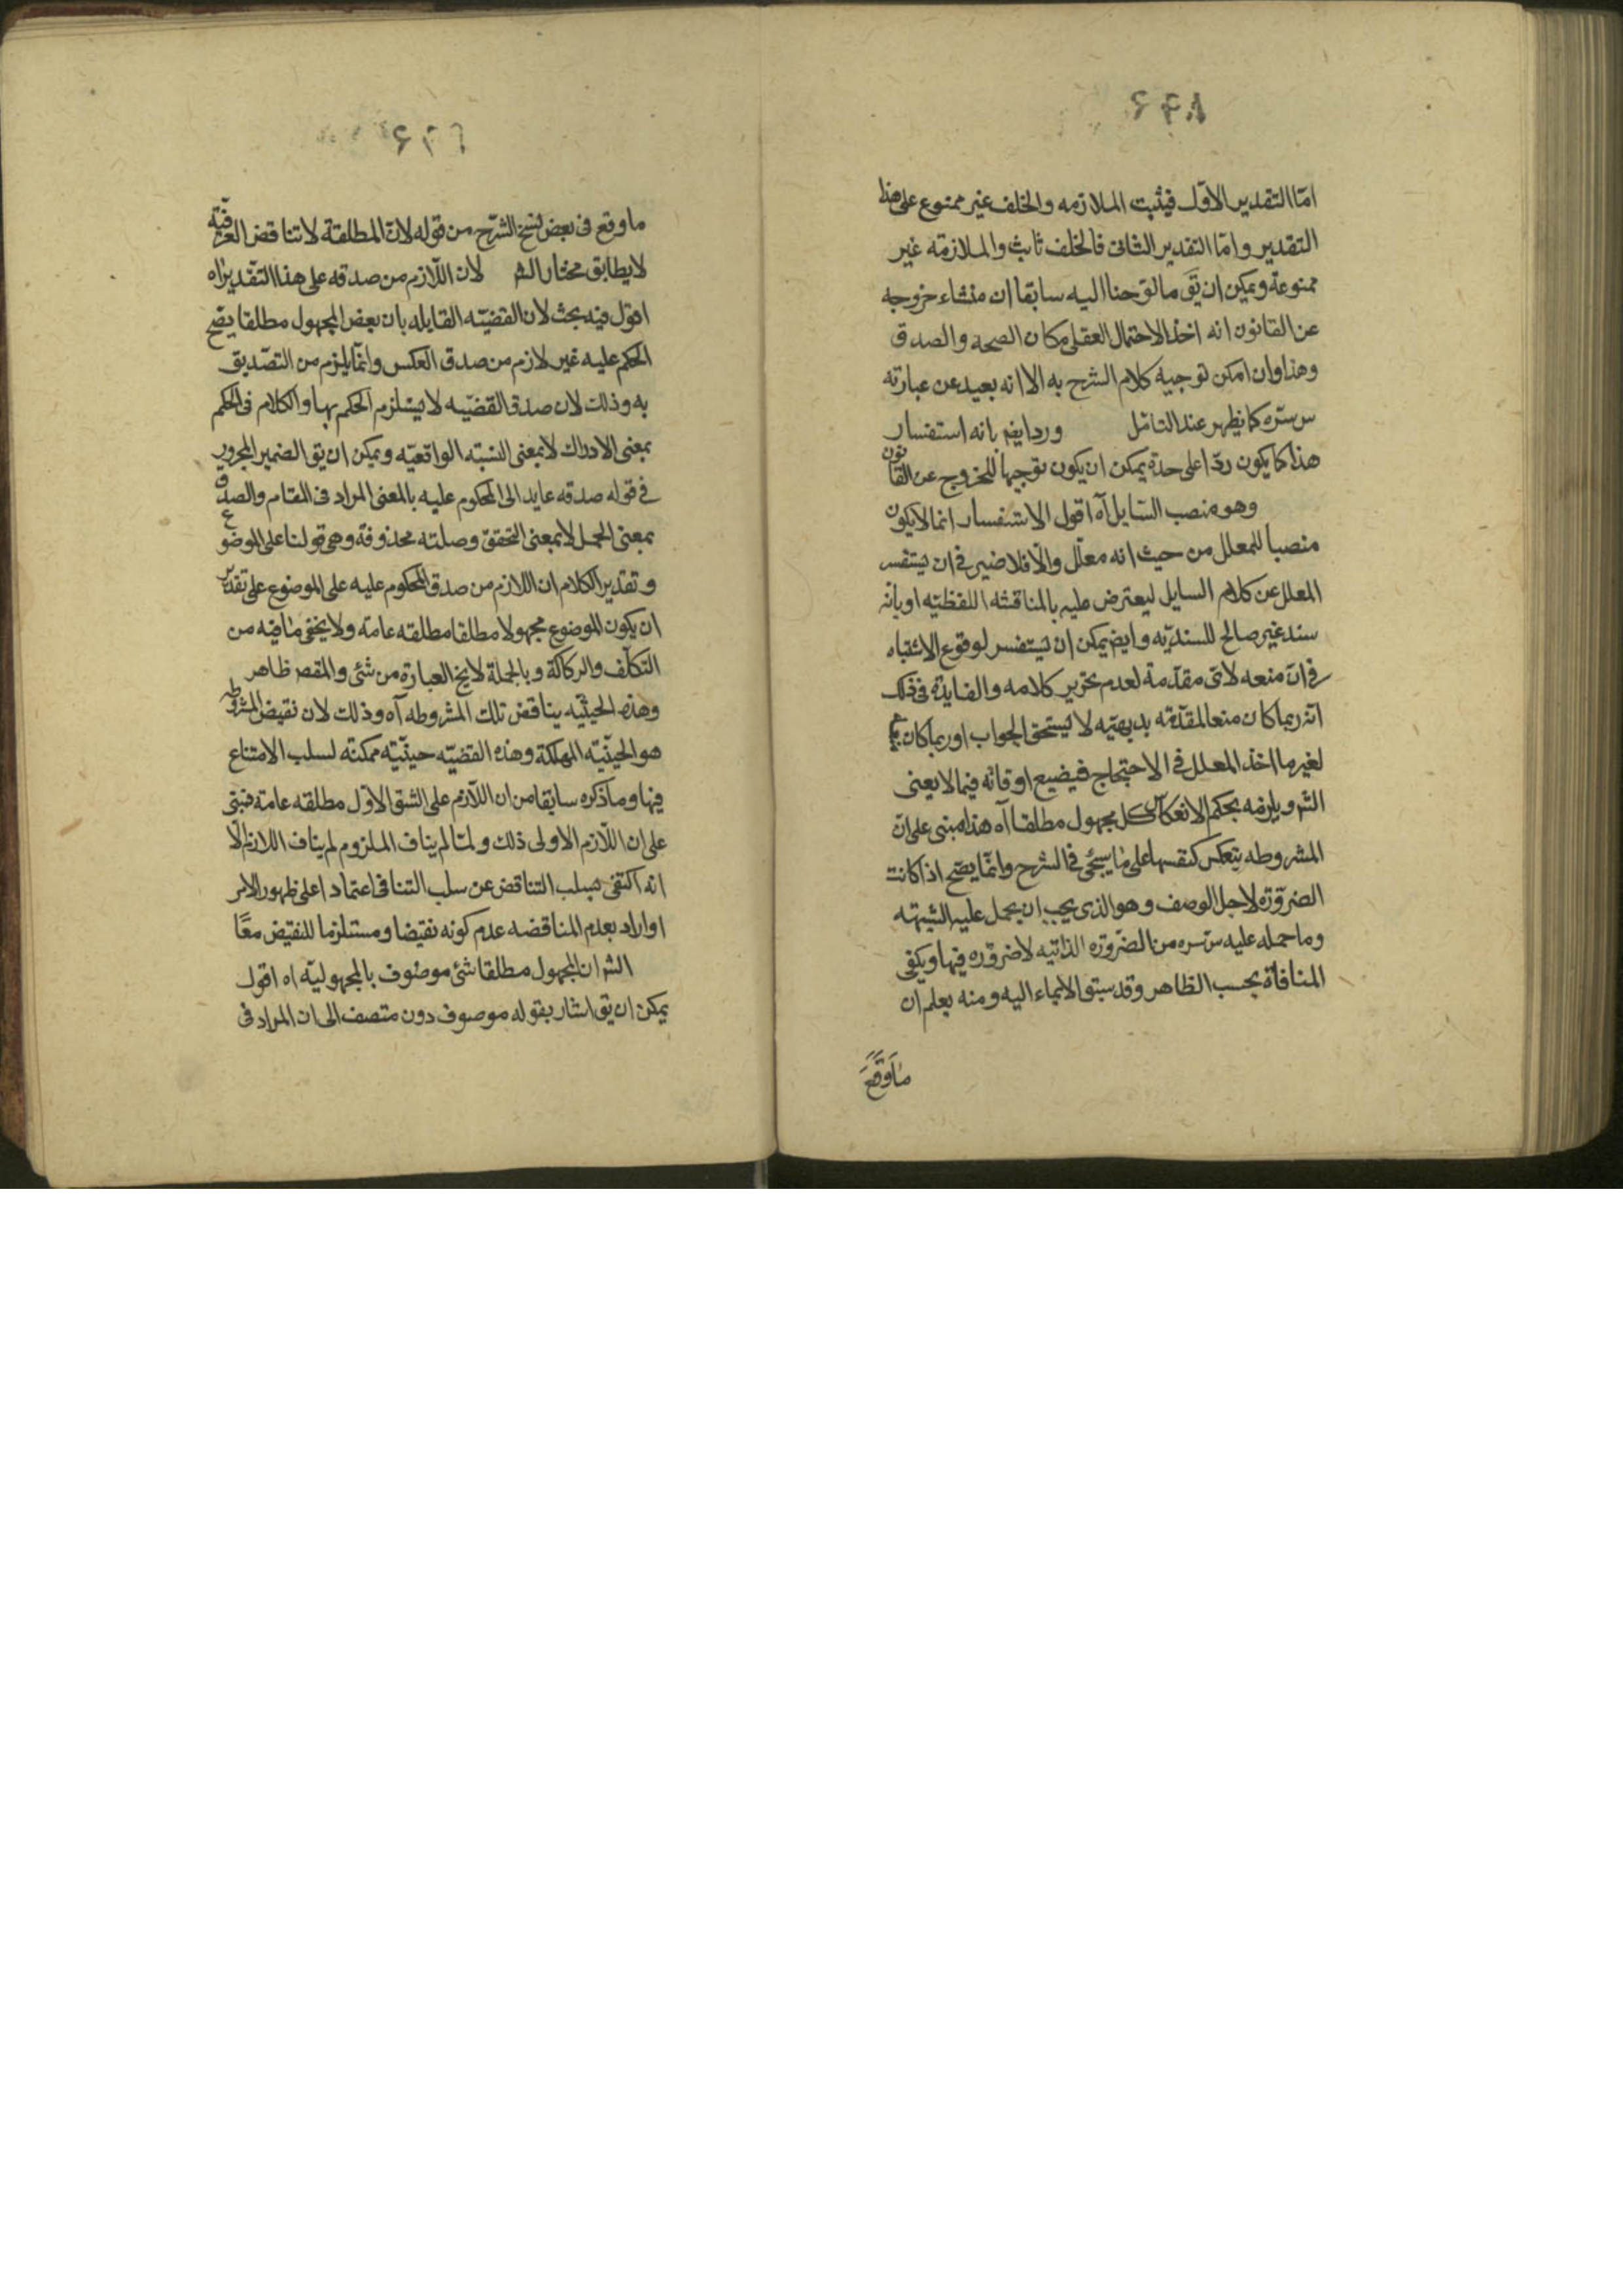 امّا التقدير الاوّل فيثبت الملازمه والخلف غير ممنوع على هذا
التقدير وامّا التقدير الثانى فالخلف ثابت والملازمته غير
ممنوعة ويمكن ان يق ما لوّحنا اليه سابقا ان منشاء خروجه
عن القانون انه اخذ الاحتمال العقلى مكان الصحه والصدق
وهذا وان امكن توجيه كلام الشرح به الا انه بعيد عن عبارته
س سره كما يظهر عند التامّل ورد ايضم بانه استفسار
هذا كما يكون ردّا على حدة يمكن ان يكون توجيها للخروج عن القانون
وهو منصب السّايل آه اقول الاستفسار انما لا يكون
منصبا للمعلل من حيث انه معلّل والّا فلا ضير فى ان يستفسر
المعلل عن كلام السايل ليعترض عليه بالمناقشه اللفظيّه او بانه
سند غير صالح للسنديّه وايضم يمكن ان يستفسر لوقوع الاشتباه
فى انّ منعه لاىّ مقدّمة لعدم تحرير كلامه والفايدة فى ذلك
انّه ربما كان منعا لمقدّمته بديهيّه لا يستحق الجواب او ربما كان
لغير ما اخذ المعلل فى الاحتجاج فيضيع اوقاته فيما لا يعنى
الشر ويلزمه بحكم الانعكاس كل مجهول مطلقا آه هذا مبنى على انّ
المشروطه ينعكس كنفسها على ما سيجئ فى الشرح وانّما يصّح اذا كانت
الضّروّرة لاجل الوصف وهو الذى يجب ان يحمل عليه الشبهته
وما حمله عليه س سره من الضّروّره الذاتيه لا ضروّره فيها ويكفى
المنافاة بحسب الظاهر وقد سبق الايماء اليه ومنه يعلم ان
ما وقع
ما وقع فى بعض نسخ الشرّح من قوله لانّ المطلقة لا تناقض العرفّية
لا يطابق مختار الشر لان اللّازم من صدقه على هذا التقّديراه
اقول فيه بحث لان القضيّه القايله بان بعض المجهول مطلقا يصّح
الحكم عليه غير لازم من صدق العكس وانّما يلزم من التصّديق
به وذلك لان صدق القضيّه لا يستلزم الحكم بها والكلام فى الحكم
بمعنى الادراك لا بمعنى النسبته الواقعيّه ويمكن ان يق الضمير المجرور
فى قوله صدقه عايد الى المحكوم عليه بالمعنى المراد فى المقام والصدق
بمعنى الحمل لا بمعنى التحقق وصلته محذوفة وهى قولنا على الموضوع
وتقدير الكلام ان اللازم من صدق المحكوم عليه على الموضوع على تقدير
ان يكون الموضوع مجهولا مطلقا مطلقه عامة ولا يخفى ما فيه من
التكلّف والركاكة وبالجملة لا يخ العبارة من شئ والمقصر ظاهر
وهذه الحيثيّه يناقض تلك المشروطه آه وذلك لان نقيض المشروطه
هو الحينّيّة الممكنة وهذه القضيّه حينيّه ممكنه لسلب الامتناع
فيها وما ذكره سابقا من ان اللّازم على الشق الاوّل مطلقه عامة فبنى
على ان اللّازم الاولى ذلك ولمّا لم يناف الملزوم لم يناف اللازم الّا
انه اكتفى بسلب التناقض عن سلب التنافى اعتمادا على ظهور الامر
او اراد بعدم المناقضه عدم كونه نقيضا ومستلزما للنقيض معًا
الشر ان المجهول مطلقا شئ موصوف بالمجهوليّه اه اقول
يمكن ان يق اشار بقوله موصوف دون متصف الى ان المراد فى